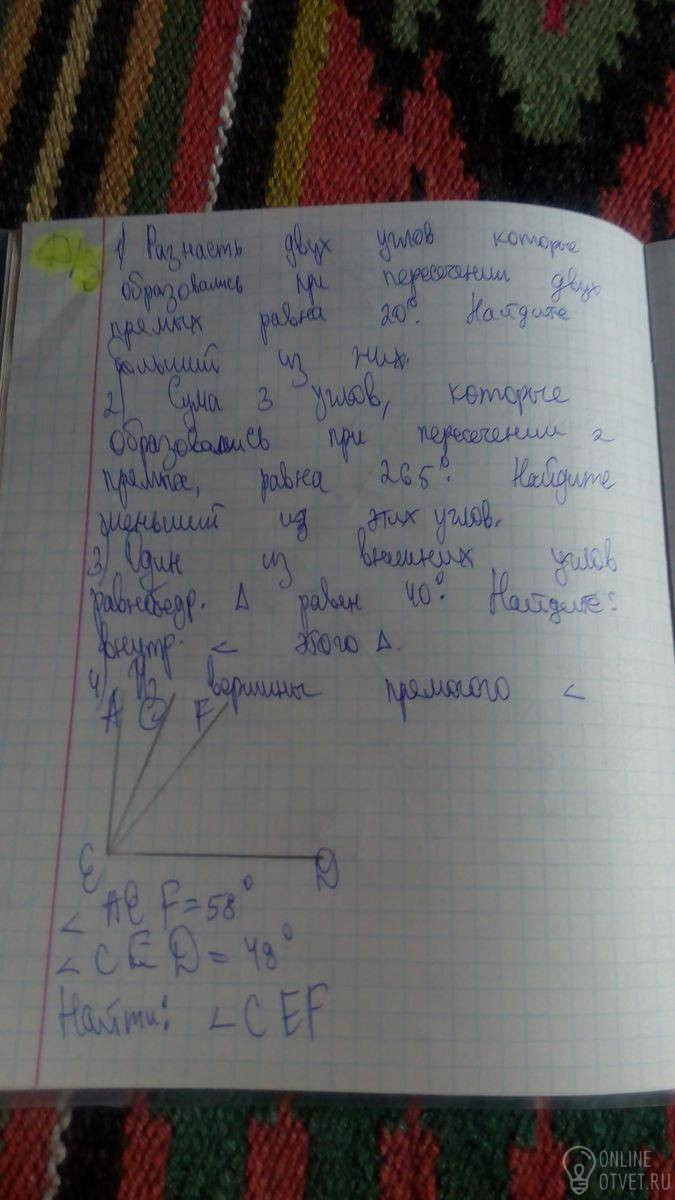 Д/З
1) Разнасть двух углов которые
образовались при пересечении двух
прямых равна 20°. Найдите
больший из них.
2) Сума 3 углов, которые
образовались при пересечении 2
прямых, равна 265°. Найдите
меньший из этих углов.
3) Один из внешних углов
равнобедр. Δ равен 40°. Найдите:
внутр. < этого Δ.
4) Из вершины прямого <
A C F
E D
< AEF = 58°
< CED = 49°
Найти: < CEF
ONLINE
OTVET.RU